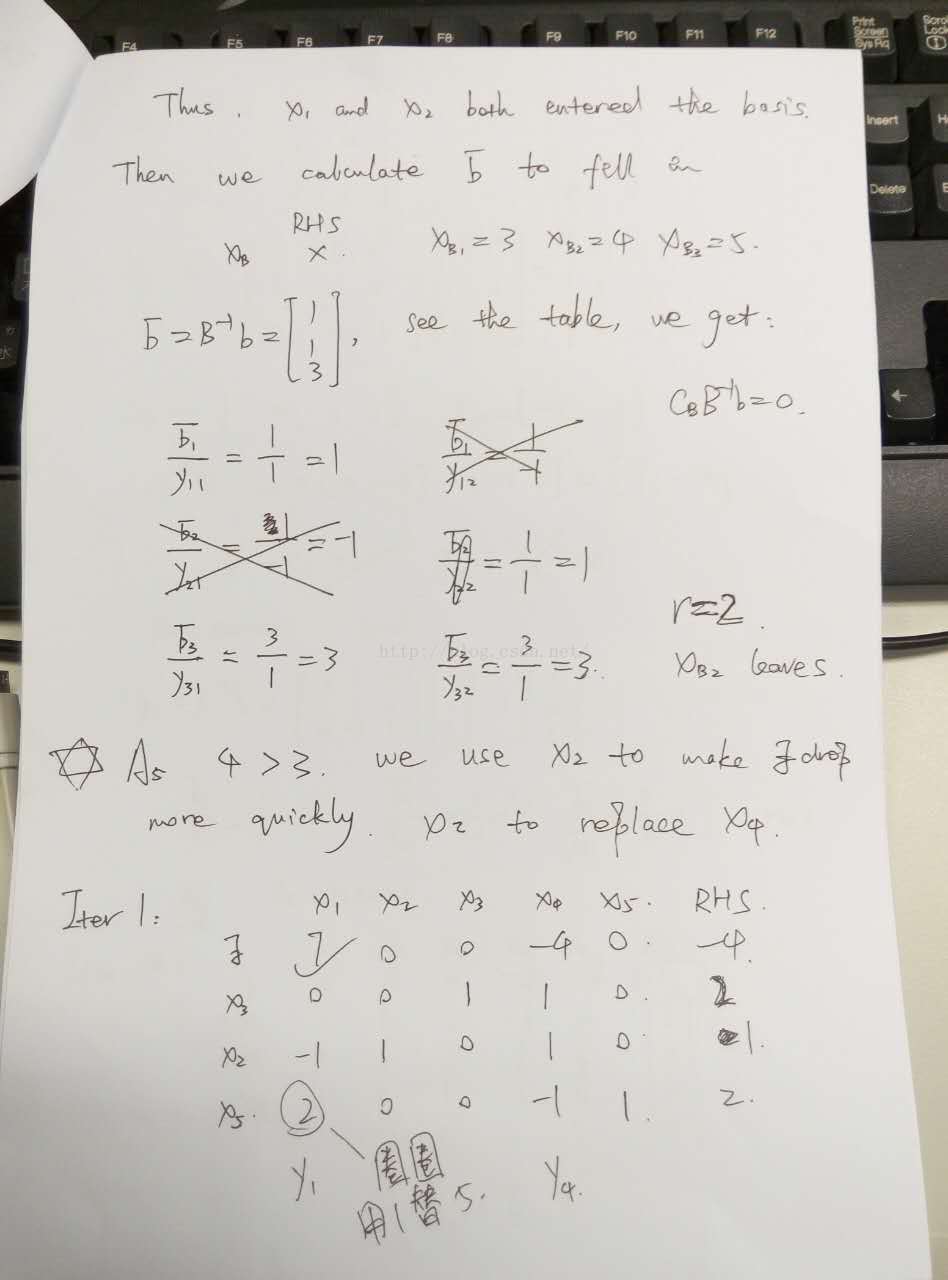 F4 F5 F6 F7 F8 F9 F10 F11 F12 Print Screen Sys Rq Scro Lock
Insert
Delete
Thus, x₁ and x₂ both entered the basis.
Then we calculate b̄ to fell in
RHS
x_B x. x_B₁=3 x_B₂=4 x_B₃=5.
b̄=B⁻¹b=[1 1 3], see the table, we get:
C_B B⁻¹b=0.
b̄₁/y₁₁ = 1/1 = 1 b̄₁/y₁₂ = 1/-1
b̄₂/y₂₁ = 1/-1 = -1 b̄₂/y₂₂ = 1/1 = 1
r=2.
b̄₃/y₃₁ = 3/1 = 3 b̄₃/y₃₂ = 3/1 = 3. x_B₂ leaves.
http://blog.csdn.net/
As 4>3. we use x₂ to make z drop
more quickly. x₂ to replace x₄.
Iter 1: x₁ x₂ x₃ x₄ x₅. RHS.
z 7 0 0 -4 0. -4.
x₃ 0 0 1 1 0. 2
x₂ -1 1 0 1 0 1.
x₅. 2 0 0 -1 1. 2.
y₁ y₄.
用1替5.